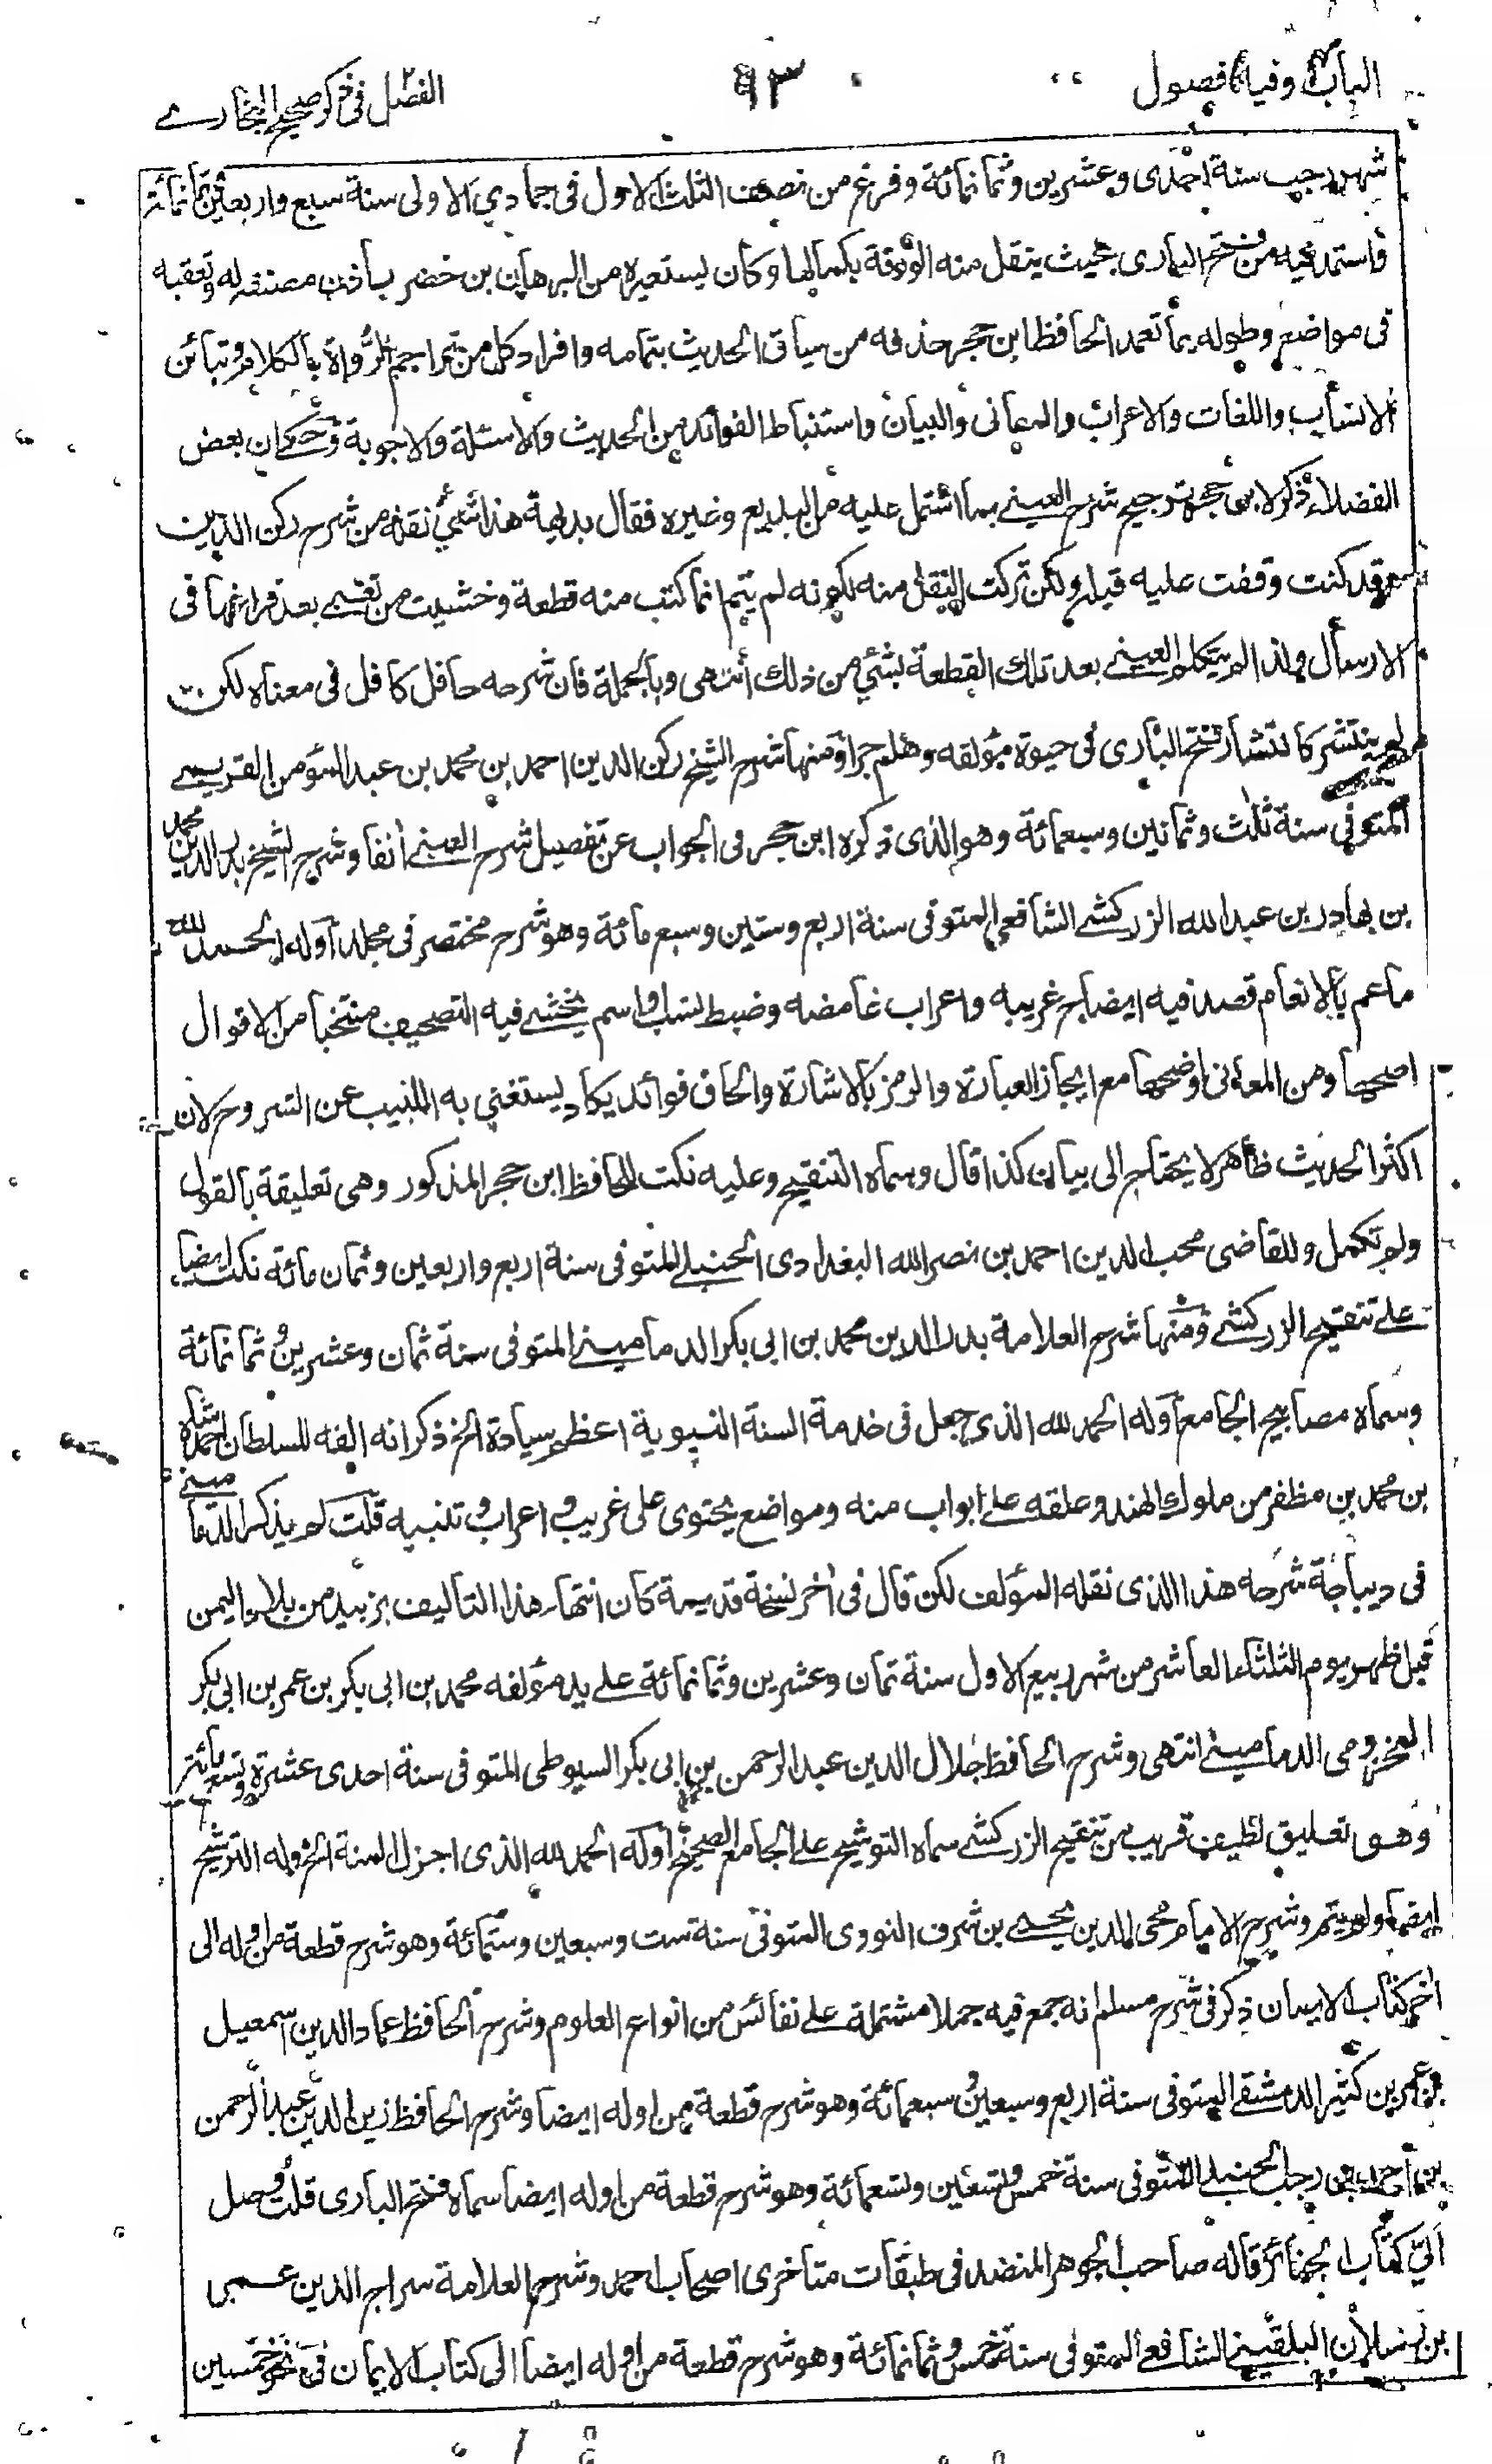 الباب وفيه فصول
٩٣
الفصل فى ذكر صحيح البخارے
شهر رجب سنة احدى وعشرين وثمانمائة وفرغ من نصف الثلث الاول فى جمادي الاولى سنة سبع واربعين ثمانمائة
فاستمد فيه من فتح البارى بحيث ينقل منه الورقة بكمالها وكان يستعيره من البرهان بن خضر باذن مصنفه له وتعقبه
فى مواضع وطوله بما تعمد الحافظ ابن حجر حذفه من سياق الحديث بتمامه وافراد كل من تراجم الرواة بالكلام وتبائن
الانساب واللغات والاعراب والمعانى والبيان واستنباط الفوائد من الحديث والاسئلة والاجوبة وحكے ان بعض
الفضلاء ذكر لابن حجر ترجيح شرح العينے بما اشتمل عليه من البديع وغيره فقال بديهة هذا شئ نقله من شرح ركن الدين
وقد كنت وقفت عليه قبله ولكن تركت النقل منه لكونه لم يتم انما كتب منه قطعة وخشيت من تعبے بعد فراغها فى
الارسال ولذا لم يتكلم العينے بعد تلك القطعة بشئ من ذلك انتهى وبالجملة فان شرحه حافل كافل فى معناه لكن
لم ينتشر كانتشار فتح البارى فى حيوة مؤلفه وهلم جرا ومنها شرح الشيخ ركن الدين احمد بن محمد بن عبد المؤمن القريمے
المتوفى سنة ثلث وثمانين وسبعمائة وهو الذى ذكره ابن حجر فى الجواب عن تفصيل شرح العينے انفا وشرح الشيخ بدر الدين محمد
بن بهادر بن عبد الله الزركشے الشافعي المتوفى سنة اربع وستين وسبع مائة وهو شرح مختصر فى مجلد اوله الحمد لله
ما عم بالانعام قصد فيه ايضاح غريبه واعراب غامضه وضبط نسب او اسم يخشے فيه التصحيف منتخبا من الاقوال
اصحها ومن المعانى اوضحها مع ايجاز العبارة والرمز بالاشارة والحاق فوائد يكاد يستغني به اللبيب عن الشروح لان
اكثر الحديث ظاهر لا يحتاج الى بيان كذا قال وسماه التنقيح وعليه نكت للحافظ ابن حجر المذكور وهى تعليقة بالقول
ولم تكمل وللقاضى محب الدين احمد بن نصر الله البغدادى الحنبلے المتوفى سنة اربع واربعين وثمان مائة نكت ايضا
علے تنقيح الزركشے ومنها شرح العلامة بدر الدين محمد بن ابى بكر الدمامينے المتوفى سنة ثمان وعشرين ثمانمائة
وسماه مصابيح الجامع اوله الحمد لله الذى جعل فى خدمة السنة النبوية اعظم سيادة الخ ذكر انه الفه للسلطان احمد شاه
بن محمد بن مظفر من ملوك الهند وعلقه علے ابواب منه ومواضع يحتوى على غريب و اعراب وتنبيه قلت لم يذكر الدمامينے
فى ديباجة شرحه هذا الذى نقله المؤلف لكن قال فى اخر نسخة قديمة كان انتهاء هذا التاليف بزبيد من بلاد اليمن
قبل ظهر يوم الثلثاء العاشر من شهر ربيع الاول سنة ثمان وعشرين وثمانمائة علے يد مؤلفه محمد بن ابى بكر بن عمر بن ابى بكر
المخزومى الدمامينے انتهى وشرح الحافظ جلال الدين عبد الرحمن بن ابى بكر السيوطى المتوفى سنة احدى عشرة وتسعمائة
وهو تعليق لطيف قريب من تنقيح الزركشے سماه التوشيح علے الجامع الصحيح اوله الحمد لله الذى اجزل المنة الخ وله الترشيح
ايضا ولم يتم وشرح الامام محى الدين يحيے بن شرف النووى المتوفى سنة ست وسبعين وستمائة وهو شرح قطعة من اوله الى
اخر كتاب الايمان ذكر فى شرح مسلم انه جمع فيه جملا مشتملة علے نفائس من انواع العلوم وشرح الحافظ عماد الدين اسمعيل
بن عمر بن كثير الدمشقے المتوفى سنة اربع وسبعين وسبعمائة وهو شرح قطعة من اوله ايضا وشرح الحافظ زين الدين عبد الرحمن
بن احمد بن رجب الحنبلے المتوفى سنة خمس وتسعين وتسعمائة وهو شرح قطعة من اوله ايضا سماه فتح البارى قلت وصل
الى كتاب الجنائز قاله صاحب الجوهر المنضد فى طبقات متاخرى اصحاب احمد وشرح العلامة سراج الدين عمر
بن رسلان البلقينے الشافعے المتوفى سنة خمس وثمانمائة وهو شرح قطعة من اوله ايضا الى كتاب الايمان فى نحو خمسين